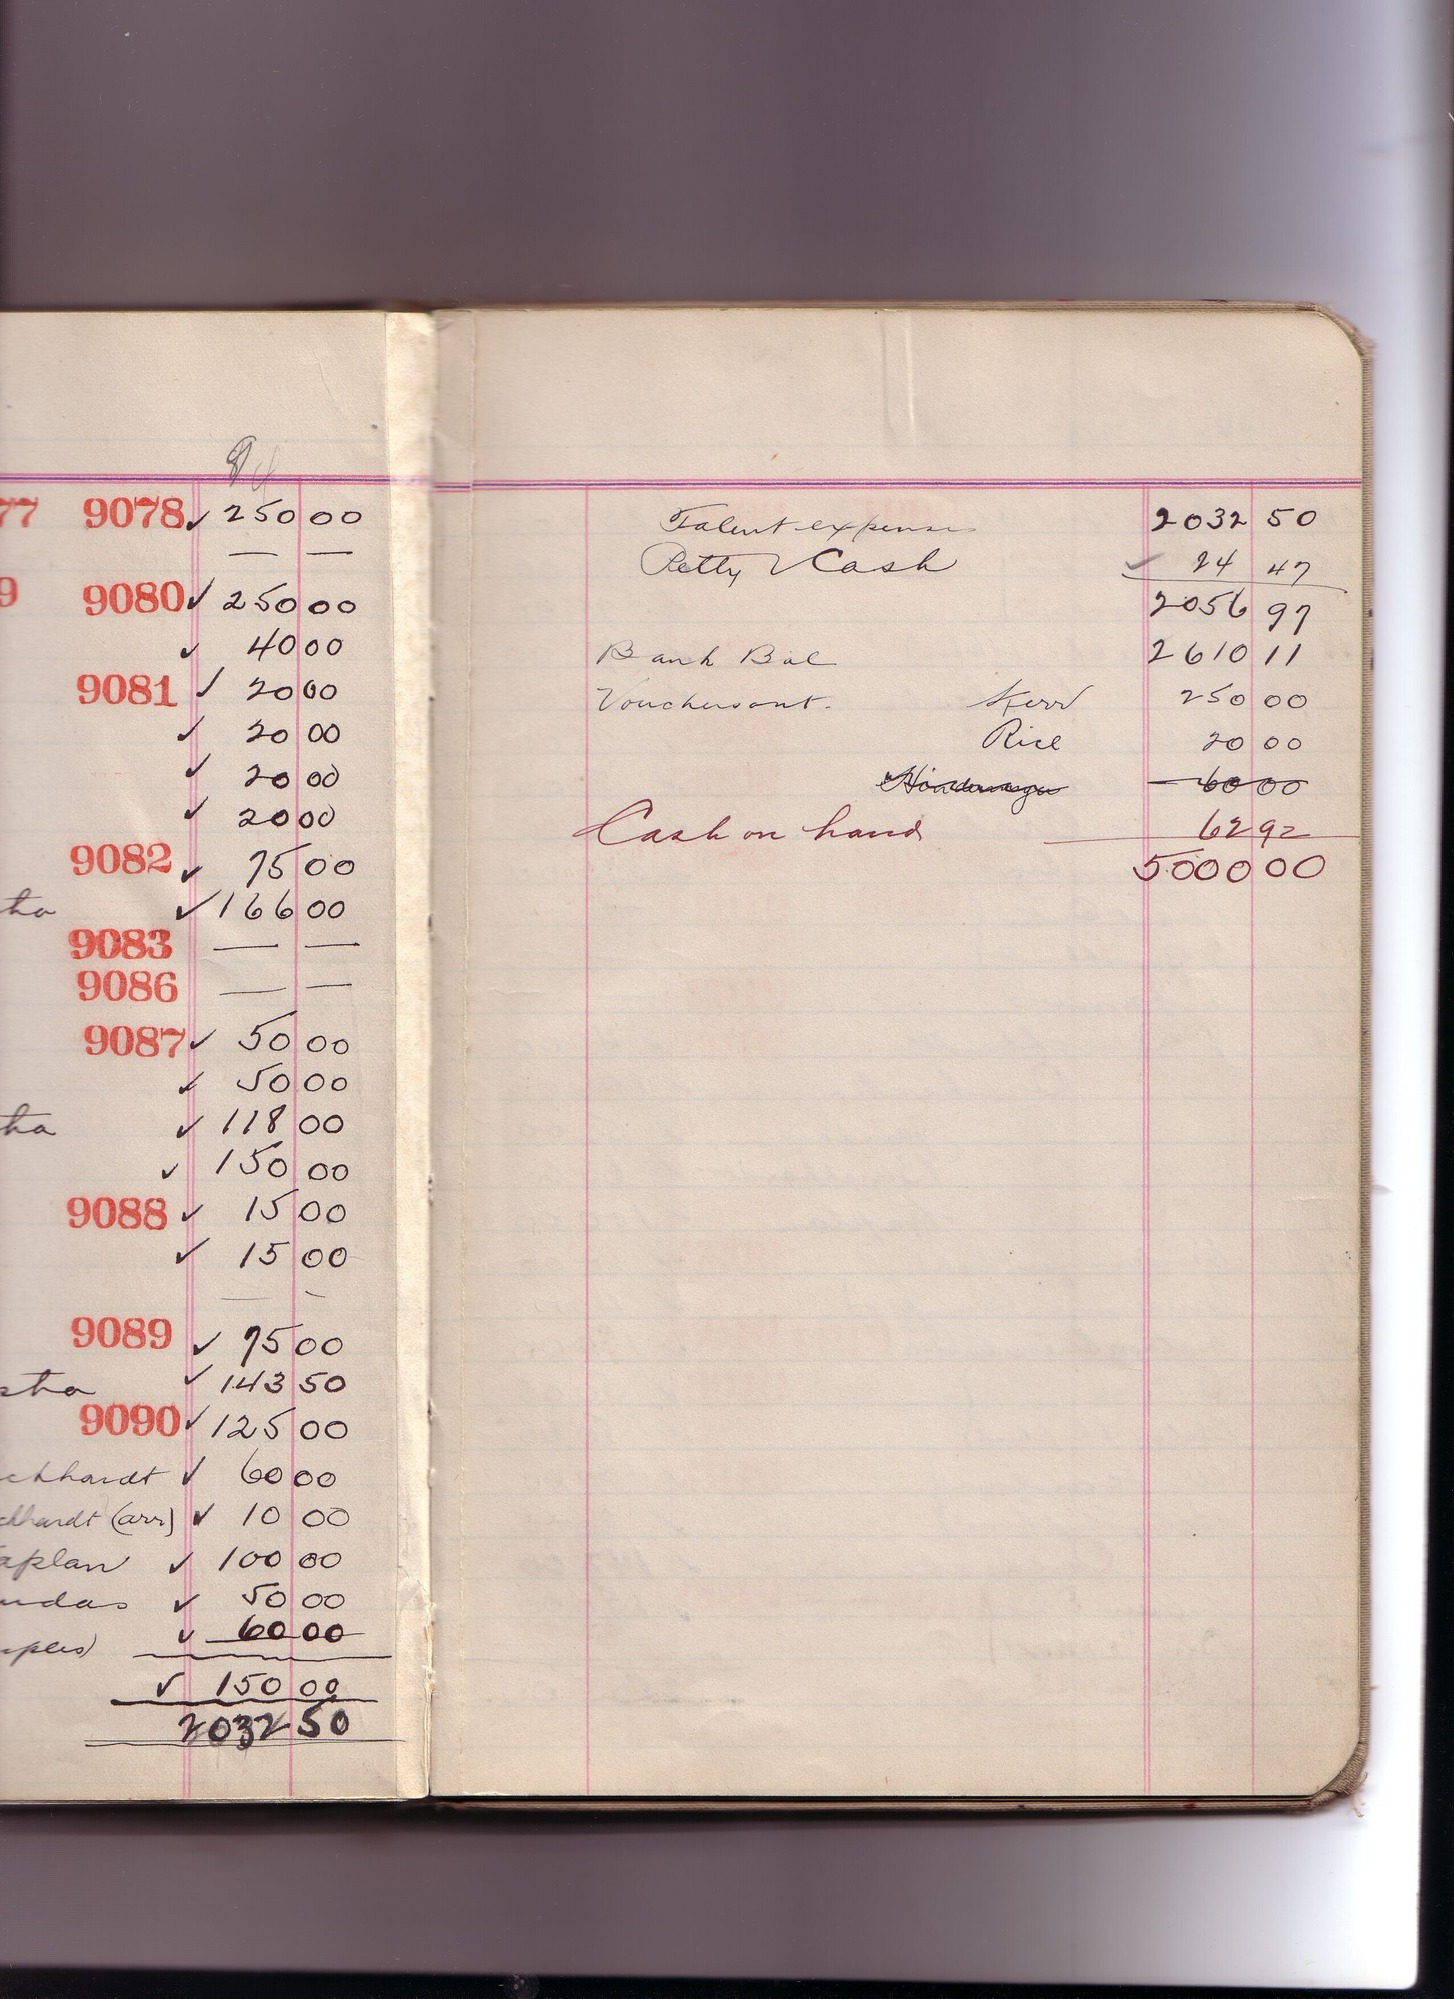 77 9078 ✓ 250 00
— —
9 9080 ✓ 250 00
✓ 40 00
9081 ✓ 20 00
✓ 20 00
✓ 20 00
✓ 20 00
9082 ✓ 75 00
tha ✓ 166 00
9083 — —
9086 — —
9087 ✓ 50 00
✓ 50 00
tha ✓ 118 00
✓ 150 00
9088 ✓ 15 00
✓ 15 00
— -
9089 ✓ 75 00
stra ✓ 143 50
9090 ✓ 125 00
ckhardt ✓ 60 00
ckhardt (arr) ✓ 10 00
aplan ✓ 100 00
udas ✓ 50 00
uples) ✓ 60 00
✓ 150 00
2032 50
Talent expense 2032 50
Petty Cash ✓ 24 47
2056 97
Bank Bal 2610 11
Vouchers out. Kerr 250 00
Rice 20 00
60 00
Cash on hand 62 92
5000 00